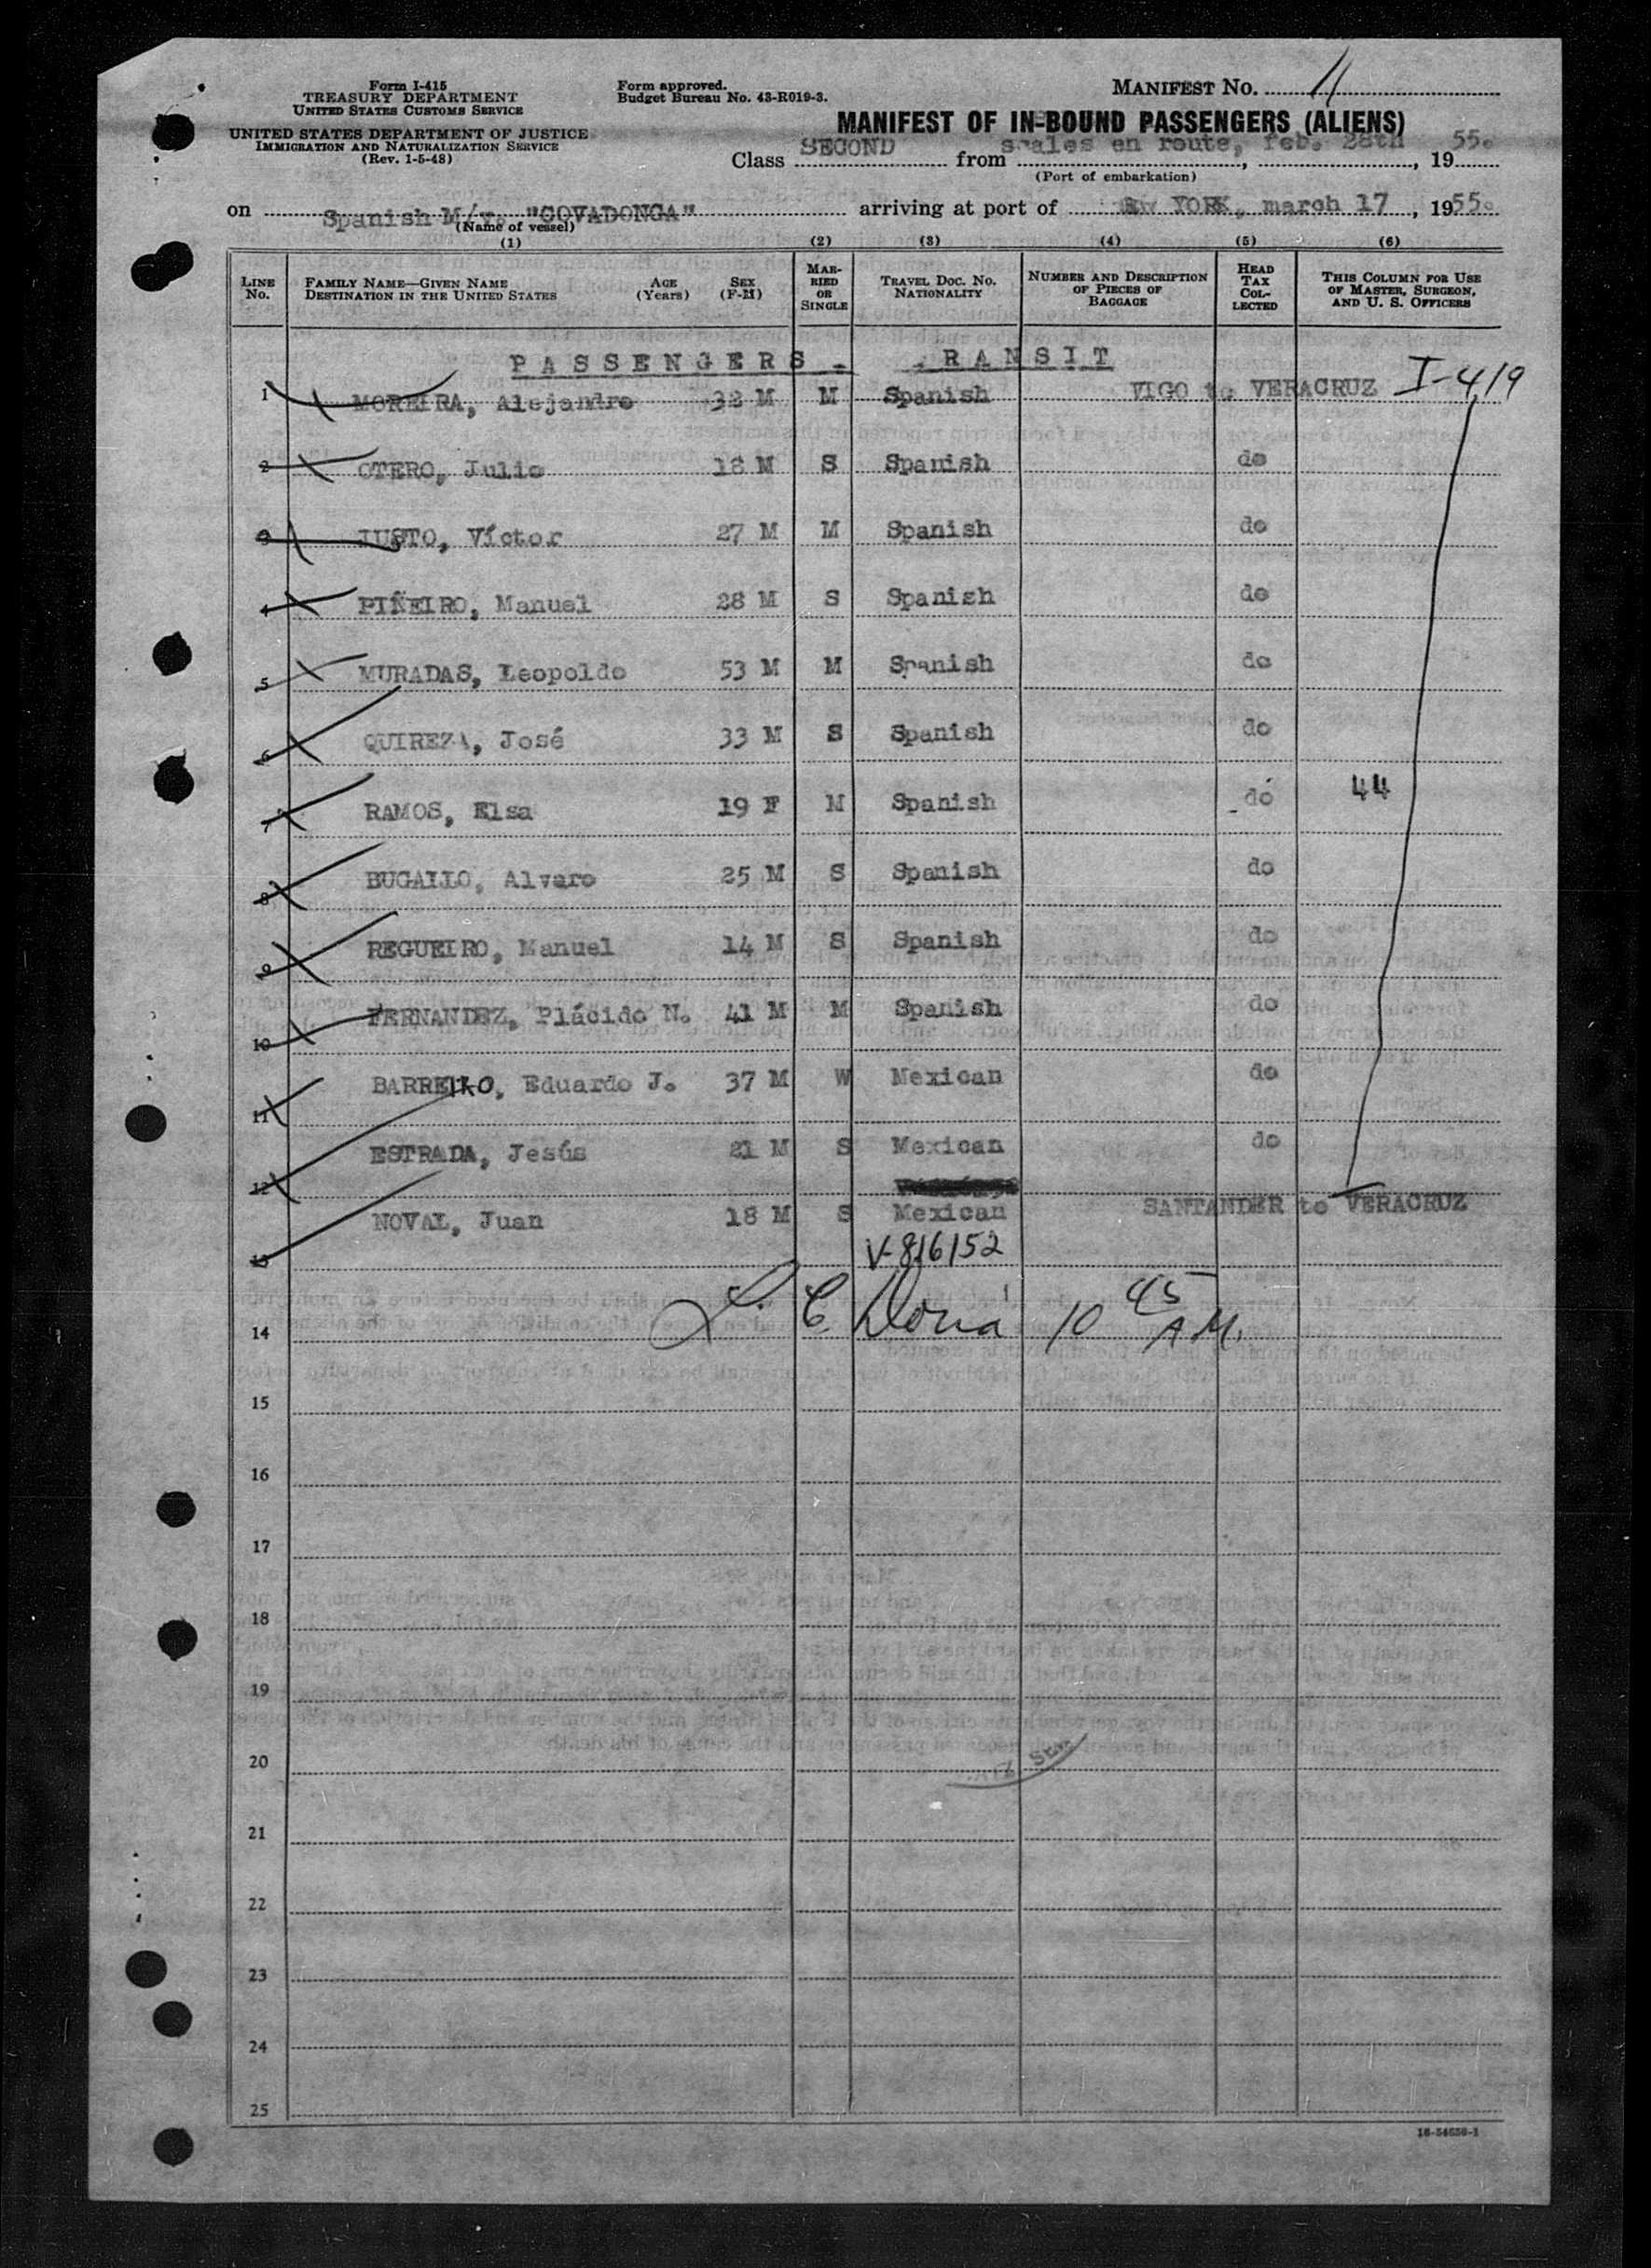 Form I-415
TREASURY DEPARTMENT
UNITED STATES CUSTOMS SERVICE
UNITED STATES DEPARTMENT OF JUSTICE
IMMIGRATION AND NATURALIZATION SERVICE
(Rev. 1-5-48)
Form approved.
Budget Bureau No. 43-R019-3.
MANIFEST NO. 11
MANIFEST OF IN-BOUND PASSENGERS (ALIENS)
Class SECOND from scales en route, feb. 28th, 1955.
(Port of embarkation)
on Spanish M/V. "COVADONGA" arriving at port of YORK, march 17, 1955.
(Name of vessel)
(1) (2) (3) (4) (5) (6)
LINE No. FAMILY NAME—GIVEN NAME DESTINATION IN THE UNITED STATES AGE (Years) SEX (F-M) MARRIED OR SINGLE TRAVEL DOC. NO. NATIONALITY NUMBER AND DESCRIPTION OF PIECES OF BAGGAGE HEAD TAX COLLECTED THIS COLUMN FOR USE OF MASTER, SURGEON, AND U. S. OFFICERS
PASSENGERS - RANSIT
1 MOREIRA, Alejandro 32 M M Spanish VIGO to VERACRUZ I-419
2 OTERO, Julio 18 M S Spanish do
3 JUSTO, Víctor 27 M M Spanish do
4 PIÑEIRO, Manuel 28 M S Spanish do
5 MURADAS, Leopoldo 53 M M Spanish do
6 QUIREZA, José 33 M S Spanish do
7 RAMOS, Elsa 19 F M Spanish do 44
8 BUGALLO, Alvaro 25 M S Spanish do
9 REGUEIRO, Manuel 14 M S Spanish do
10 FERNANDEZ, Plácido N. 41 M M Spanish do
11 BARREIRO, Eduardo J. 37 M W Mexican do
12 ESTRADA, Jesús 21 M S Mexican do
13 NOVAL, Juan 18 M S Mexican SANTANDER to VERACRUZ
V-816152
14 L. C. Doria 10 45 A.M.
15
16
17
18
19
20
21
22
23
24
25
16-54650-1